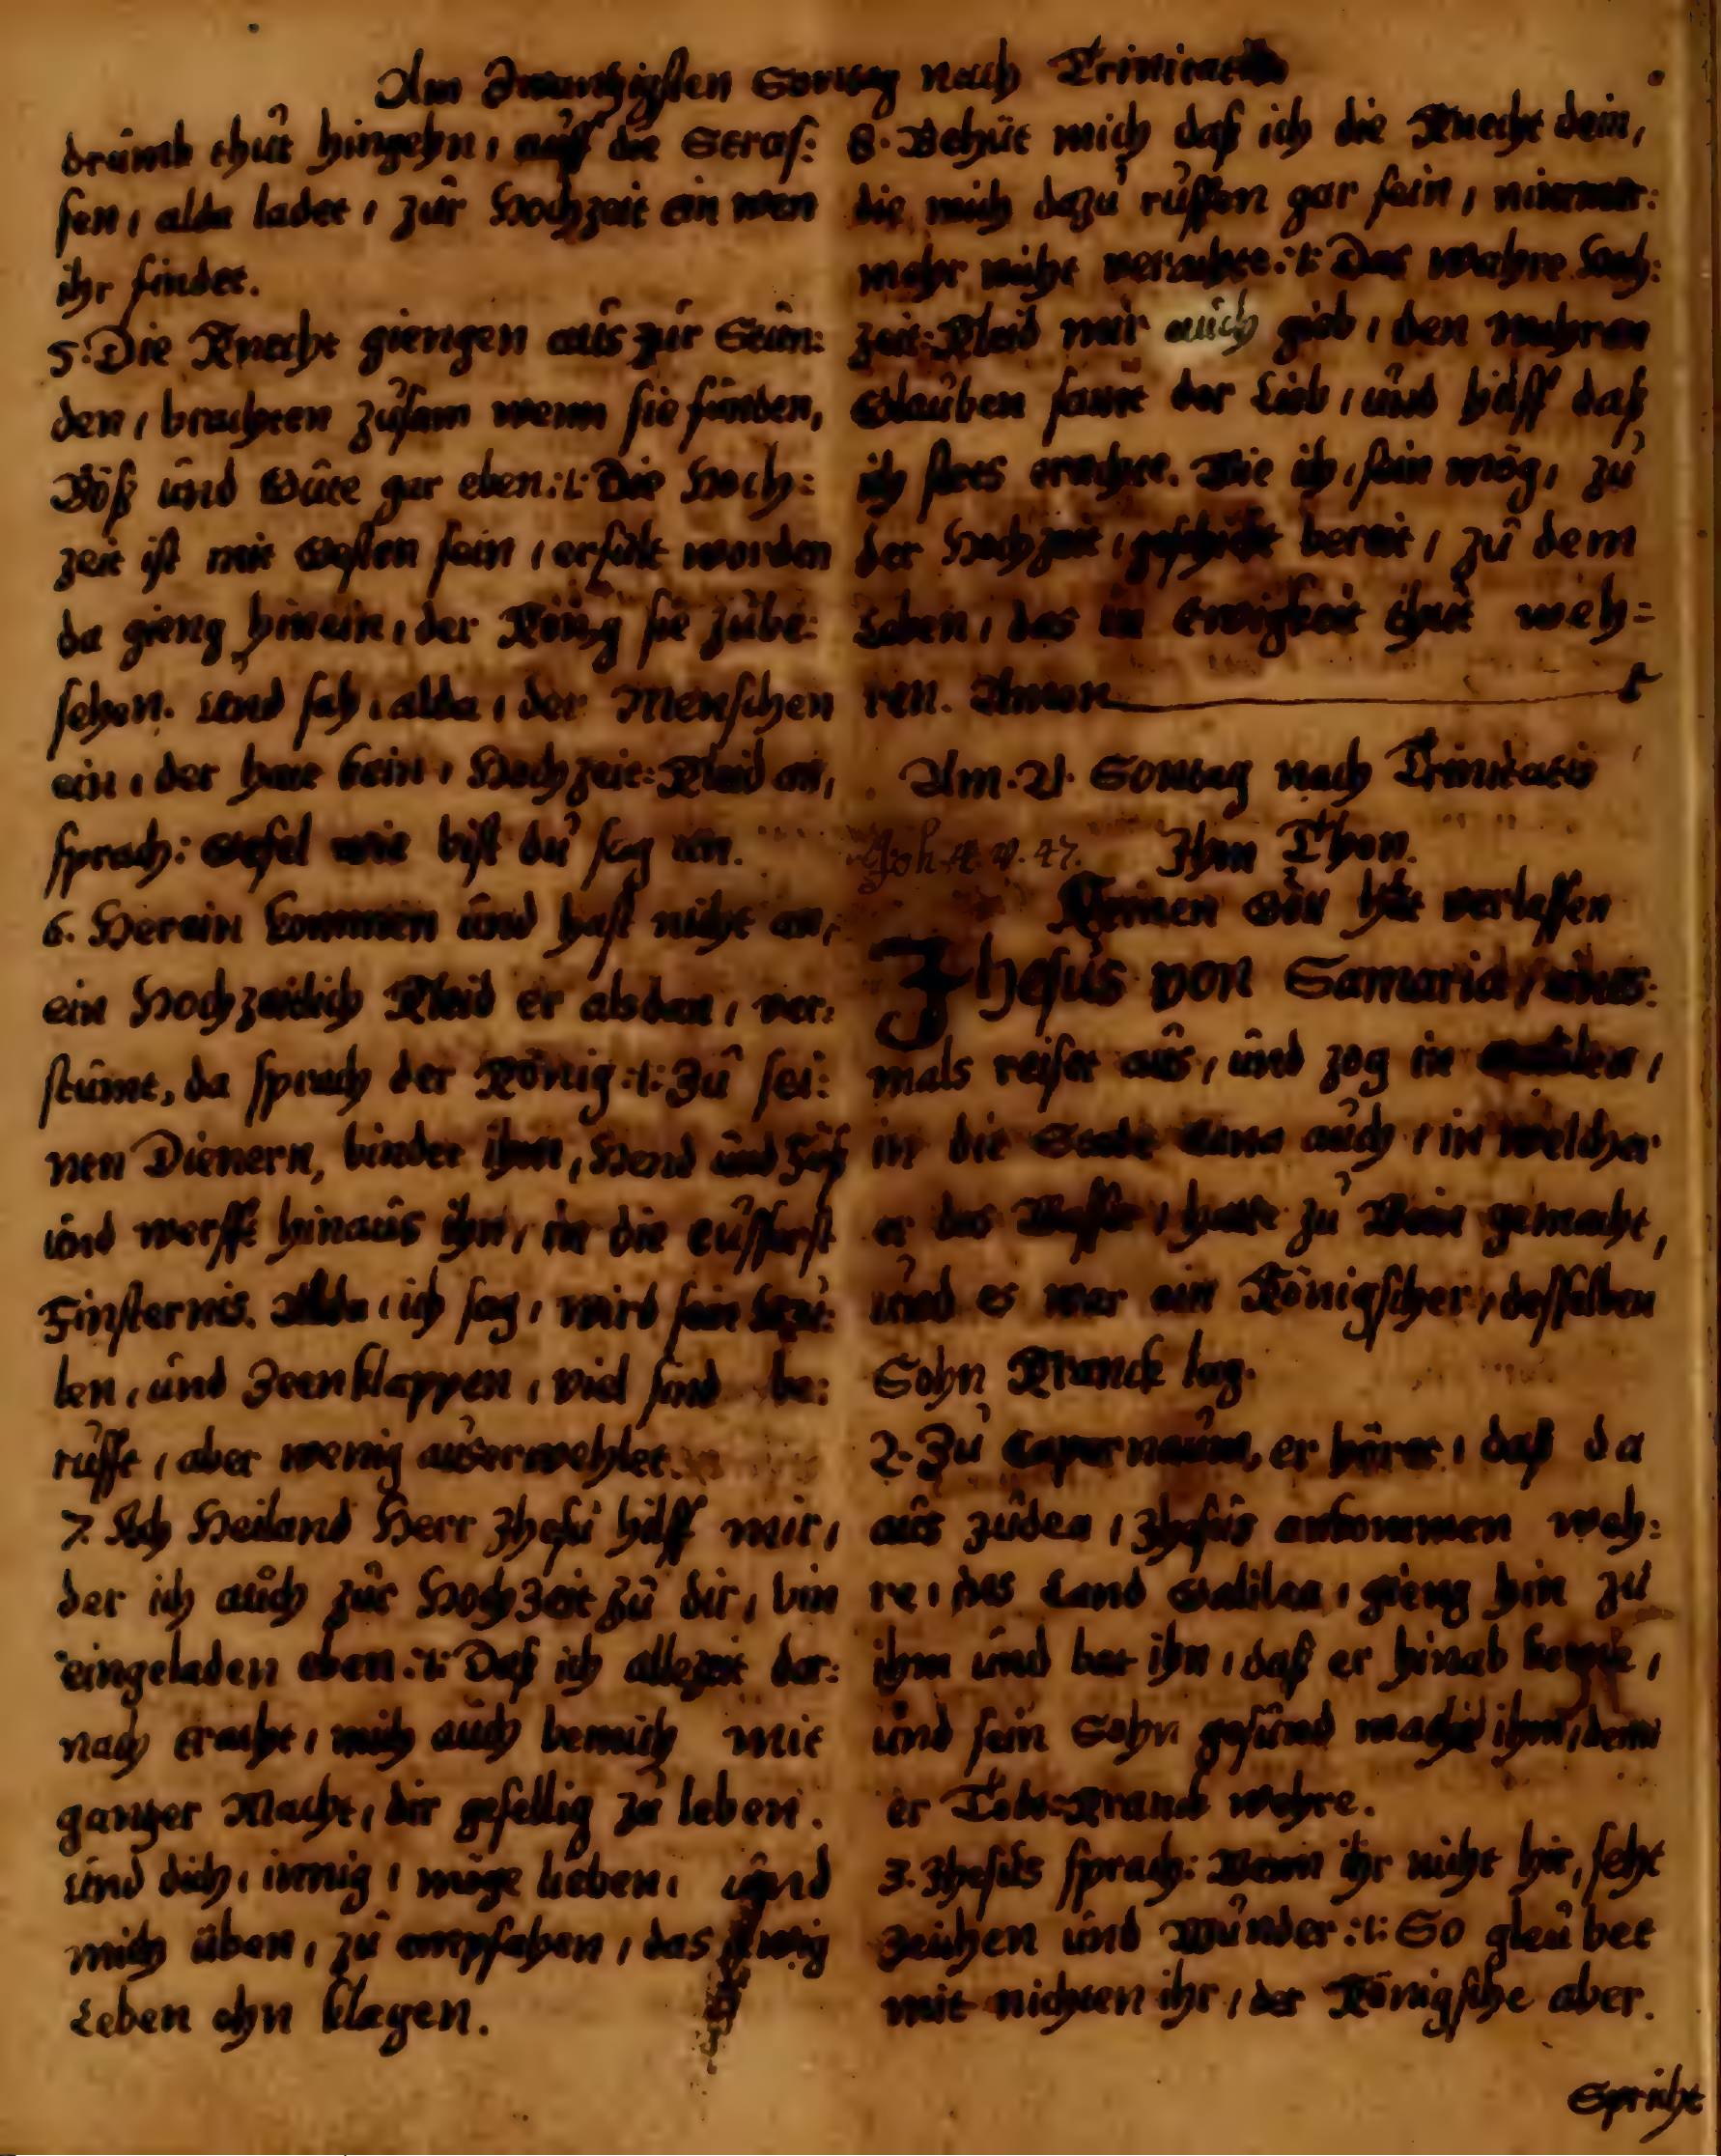 Am Zwantzigsten Sontag nach Trinitatis
drumb thut hingehn, auff die Stras:
sen, alda ladet, zur Hochzeit ein wen
ihr findet.
5. Die Knecht giengen aus zur Stun:
den, brachten zusam wenn sie funden,
Böß und Gute gar eben :t: Die Hoch:
zeit ist mit Gesten fein, erfült worden
da gieng hinein, der König sie zube:
sehen. Und sah, alda, der Menschen
ein, der hatt kein, Hochzeit: Kleid an,
sprach: Gesel wie bist du sag an.
6. Herein kommen und hast nicht an,
ein Hochzeitlich Kleid er alsdan, ver:
stumt, da sprach der König :t: Zu sei:
nen Dienern, bindet ihm, Hend und Füß
und werfft hinaus ihn, in die eusserst
Finsternis. Alda, ich sag, wird sein Heu:
len, und Zeenklappen, viel sind be:
rufft, aber wenig auserwehlet.
7. Ach Heiland Herr Jhesu hilff mir,
der ich auch zur Hochzeit zu dir, bin
eingeladen eben :t: Daß ich allezeit dar:
nach tracht, mich auch bemüh mit
gantzer Macht, dir gefellig zu leben.
Und dich, innig, möge lieben, und
mich üben, zu empfahen, das ewig
Leben ohn klagen.
8. Behüt mich daß ich die Knecht dein,
die mich dazu ruffen gar fein, nimmer:
mehr nicht verachte :t: Das wahre Hoch:
zeit: Kleid mir auch gieb, den wahren
Glauben samt der Lieb, und hilff daß
ich stets trachte. Wie ich, fein mög, zu
der Hochzeit, geschickt bereit, zu dem
Leben, das in Ewigkeit thut weh=
ren. Amen
Am. 21. Sontag nach Trinitatis
Joh. 4. v. 47. Ihm Thon.
Keinen Gott hat verlassen
Jhesus von Samaria, eins:
mals reiset aus, und zog in Galilea,
in die Stadt Cana auch, in welcher
er das Wasser, hatte zu Wein gemacht,
und es war ein Königscher, desselben
Sohn Kranck lag.
2. Zu Capernaum, er höret, daß da
aus Judea, Jhesus ankommen weh:
re, ins Land Galilea, gieng hin zu
ihm und bat ihn, daß er hinab keme,
und sein Sohn gesund macht ihm, denn
er Tods: Kranck wehre.
3. Jhesus sprach: Wenn ihr nicht hir, seht
Zeichen und Wunder :t: So gleubet
mit nichten ihr, der Königsche aber.
Spricht